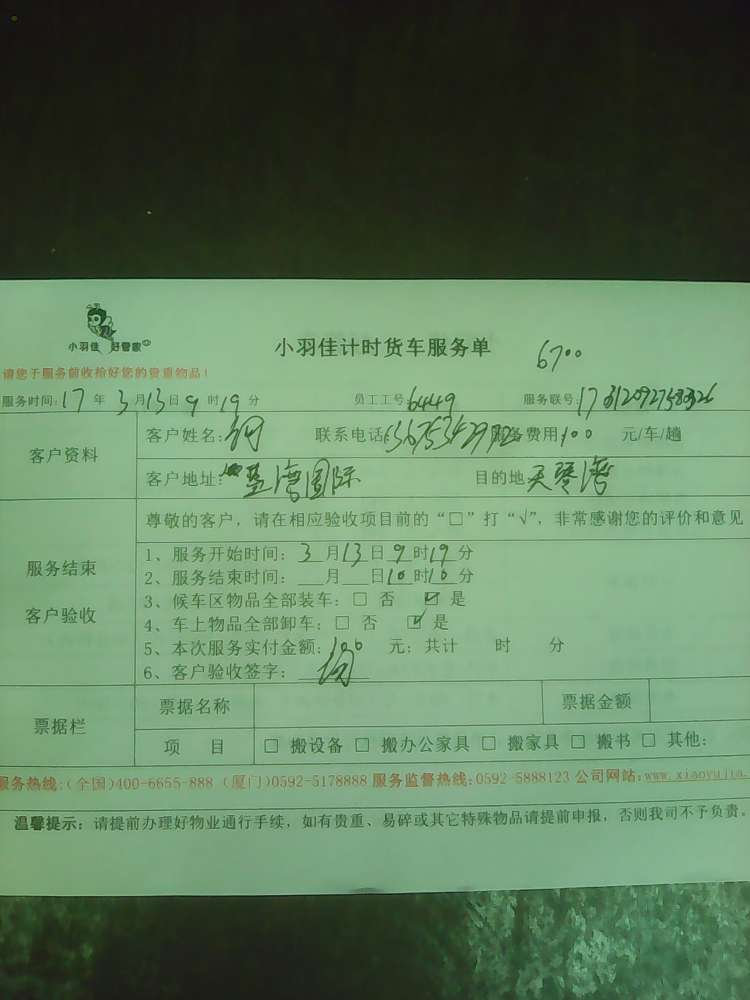 小羽佳 好管家
小羽佳计时货车服务单
6700
请您于服务前收拾好您的贵重物品！
服务时间：17年3月13日9时19分 员工工号：6449 服务联号：
客户资料
客户姓名： 联系电话： 服务费用100 元/车/趟
客户地址：蓝湾国际 目的地 天琴湾
服务结束
客户验收
尊敬的客户，请在相应验收项目前的“□”打“√”，非常感谢您的评价和意见
1、服务开始时间：3月13日9时19分
2、服务结束时间：___月___日10时10分
3、候车区物品全部装车：□ 否 ☑ 是
4、车上物品全部卸车：□ 否 ☑ 是
5、本次服务实付金额：100 元；共计 时 分
6、客户验收签字：
票据栏
票据名称 票据金额
项 目 □ 搬设备 □ 搬办公家具 □ 搬家具 □ 搬书 □ 其他：
服务热线：(全国)400-6655-888 (厦门)0592-5178888 服务监督热线：0592-5888123 公司网站：www.xiaoyujia.
温馨提示：请提前办理好物业通行手续，如有贵重、易碎或其它特殊物品请提前申报，否则我司不予负责。